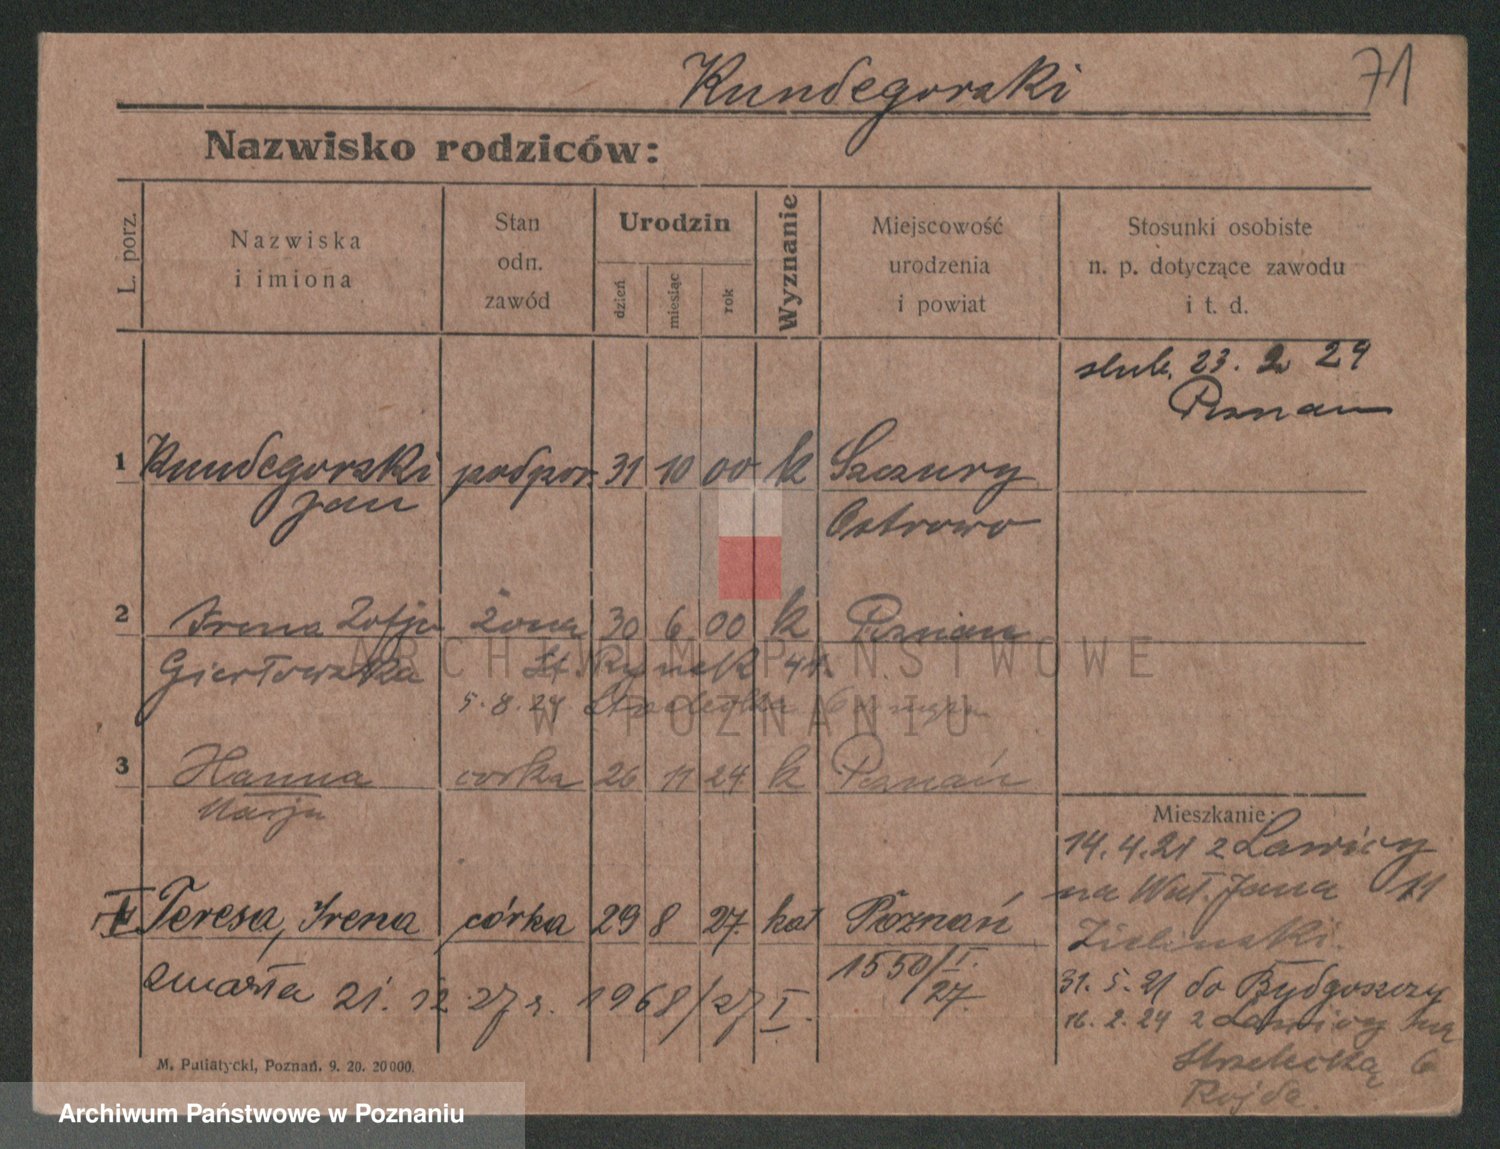 Kundegorski 71
Nazwisko rodziców:
L. porz.
Nazwiska
i imiona
Stan
odn.
zawód
Urodzin
dzień
miesiąc
rok
Wyznanie
Miejscowość
urodzenia
i powiat
Stosunki osobiste
n. p. dotyczące zawodu
i t. d.
slub. 23. 2 24
Poznan
1 Kundegorski podpor. 31 10 00 k Szczury
Jan Ostrowo
2 Irena Zofja żona 30 6 00 k Poznan
Giertowska St. Rynek 41.
5.8.24 Strzelecka 6
3 Hanna corka 26 11 24 k Poznań
Marja
Mieszkanie:
14. 4. 21 z Lawicy
na Wał. Jana 11
Zielinski.
Teresa, Irena córka 29 8 27. kat Poznań
1550/I.
27.
zmarła 21. 12. 27 r. 1968/27 I.
31. 5. 21 do Bydgoszczy
16. 2. 24 z Lawicy na
Strzelecką 6
Rojda.
M. Putiatycki, Poznań. 9. 20. 20000.
ARCHIWUM PAŃSTWOWE
W POZNANIU
Archiwum Państwowe w Poznaniu